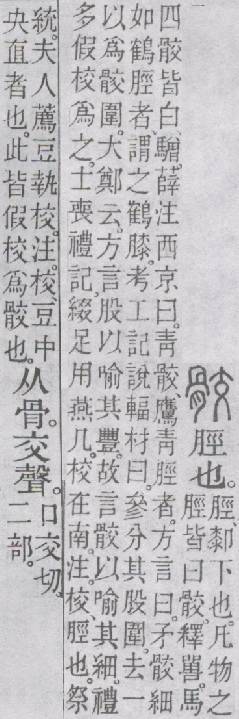 骹脛也。脛、厀下也。凡物之
脛皆曰骹。釋嘼馬
四骹皆白、驓。薛注西京曰。靑骹、鷹靑脛者。方言曰。矛骹細
如鶴脛者、謂之鶴膝。考工記說輻材曰。參分其股圍。去一
以爲骹圍。大鄭云。方言股以喻其豐。故言骹以喻其細。禮
多假校爲之。士喪禮記。綴足用燕几。校在南。注。校、脛也。祭
統。夫人薦豆執校。注。校、豆中
央直者也。此皆假校爲骹也。从骨。交聲。口交切。
二部。